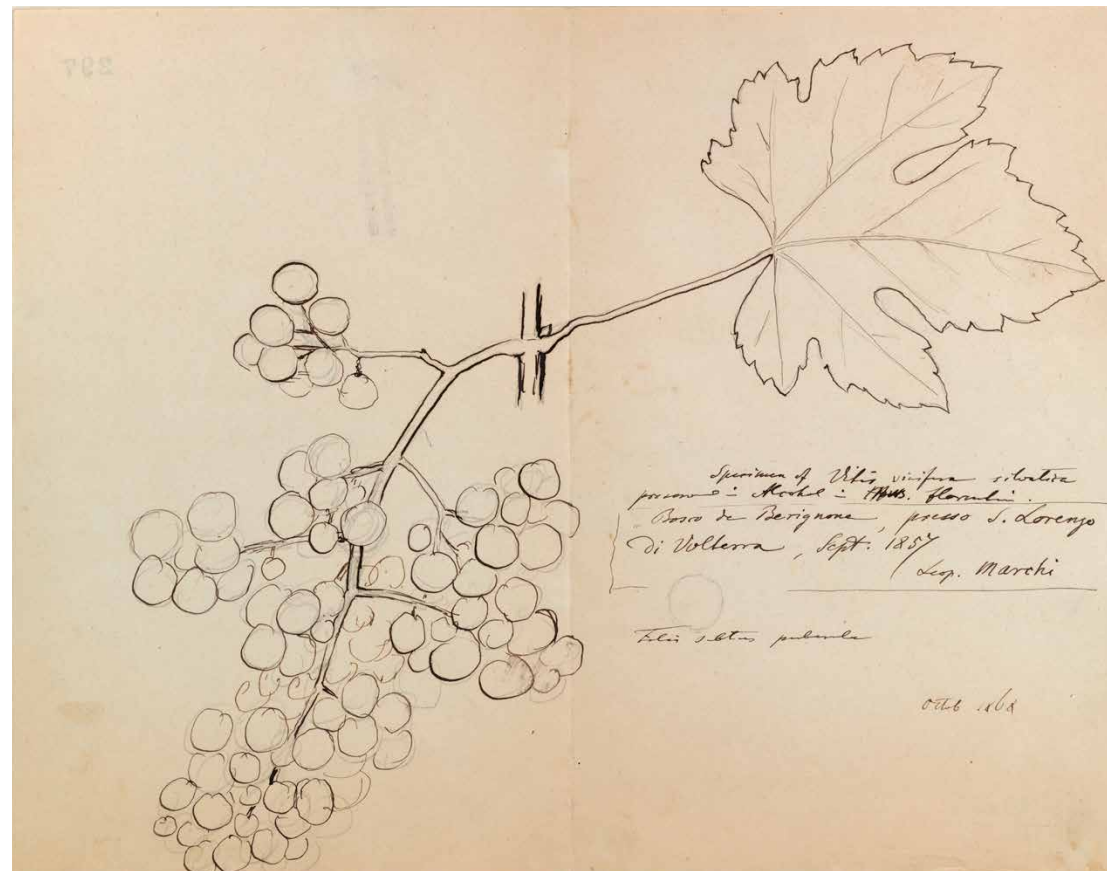 297
Specimen of Vitis vinifera silvatica
preserved in Alcohol in Mus. florentin.
Bosco di Berignone, presso S. Lorenzo
di Volterra, Sept. 1857
Leop. Marchi
Folia subtus puberula
Octob 1868